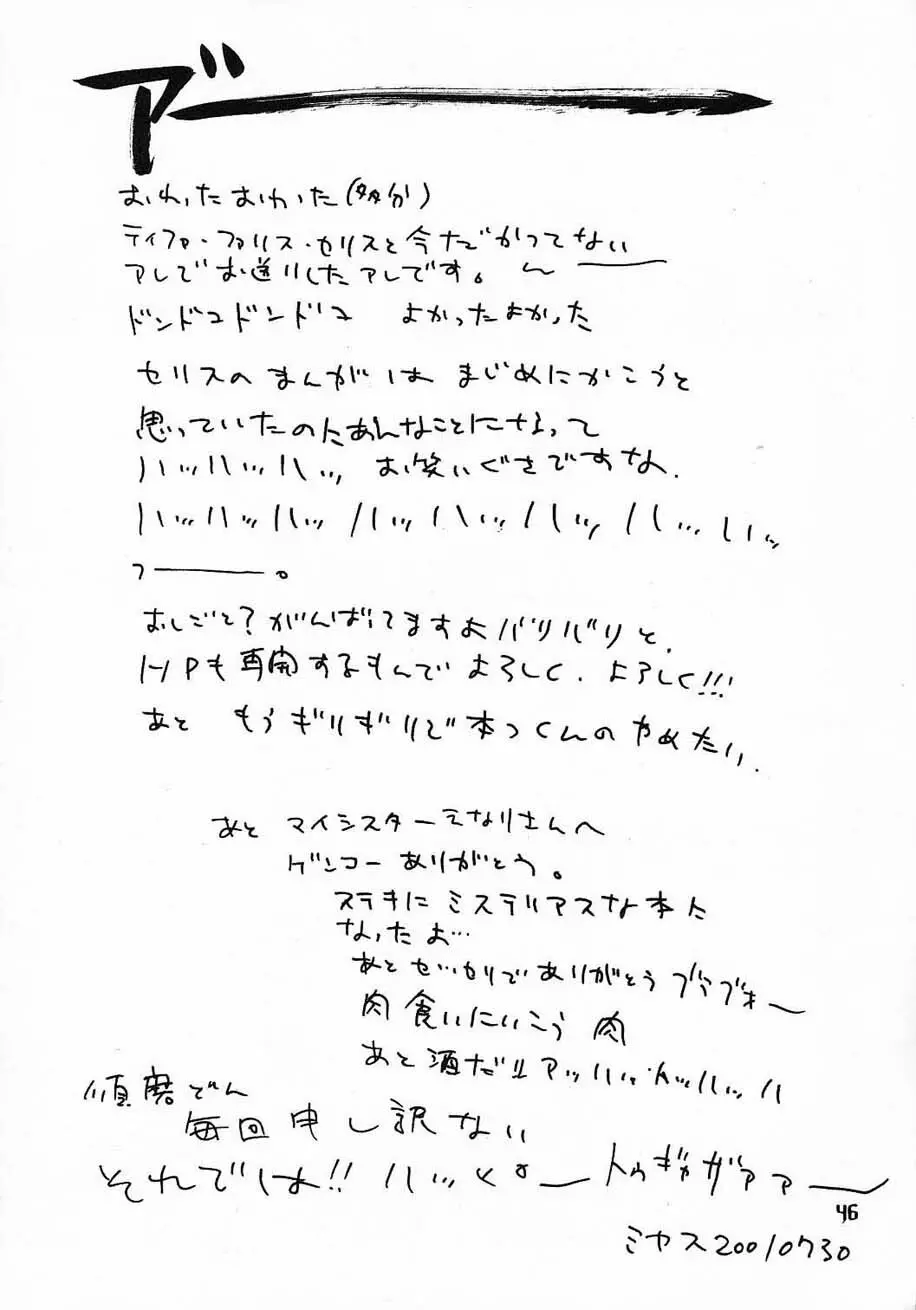 ア゛ー
おわったおわった(多分)
ティファ・ファリス・セリスと今だかつてない
アレでお送りしたアレです。
ドンドコドンドコ よかったよかった
セリスのまんがは まじめにかこうと
思っていたのにあんなことになって
ハッハッハッ お笑いぐさですな.
ハッハッハッハッハッハッハッハッ
フー。
おしごと?がんばってますよバリバリと.
HPも再開するもんでよろしく.よろしく!!!
あと もうギリギリで本つくんのやめたい.
あと マイシスターえなりさんへ
ゲンコーありがとう。
ステキにミステリアスな本に
なったよ…
あと ありがとう
肉食いにいこう 肉
あと酒だ!! アッハッハッハッハ
順磨どん
毎回申し訳ない
それでは!!
46
ミヤス20010730